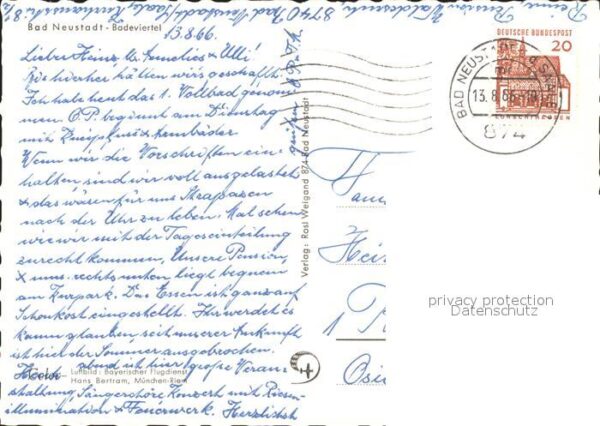 8740 Bad Neustadt/Saale, Kurhausstr.
Bad Neustadt - Badeviertel
13.8.66.
Liebe Heinz, Annelies & Ulli!
Bis hierher hätten wir's geschafft.
Ich habe heut das 1. Vollbad genom-
men O.P. beginnt am Dienstag
mit Kneippen & Armbäder
Wenn wir die Vorschriften ein-
halten, sind wir voll ausgelastet
& das wären für uns Strapazen
nach der Uhr zu leben. Mal sehen
wie wir mit der Tageseinteilung
zurecht kommen, Unsere Pension,
rechts unten liegt bequem
am Kurpark. Das Essen ist ganz auf
Schonkost eingestellt. Ihr werdet es
kaum glauben, seit unserer Ankunft
ist hier der Sommer ausgebrochen.
Heute abend ist hier große Veran-
Luftbild: Bayerischer Flugdienst
Hans Bertram, München-Riem
staltung, Sängerchöre Konzert mit Riesen-
illumination & Feuerwerk. Herzlichst
Verlag: Rosl Weigand 874 Bad Neustadt
DEUTSCHE BUNDESPOST
20
BAD NEUSTADT A D SAALE
13.8.66
874
Fam
Hei
1
privacy protection
Datenschutz